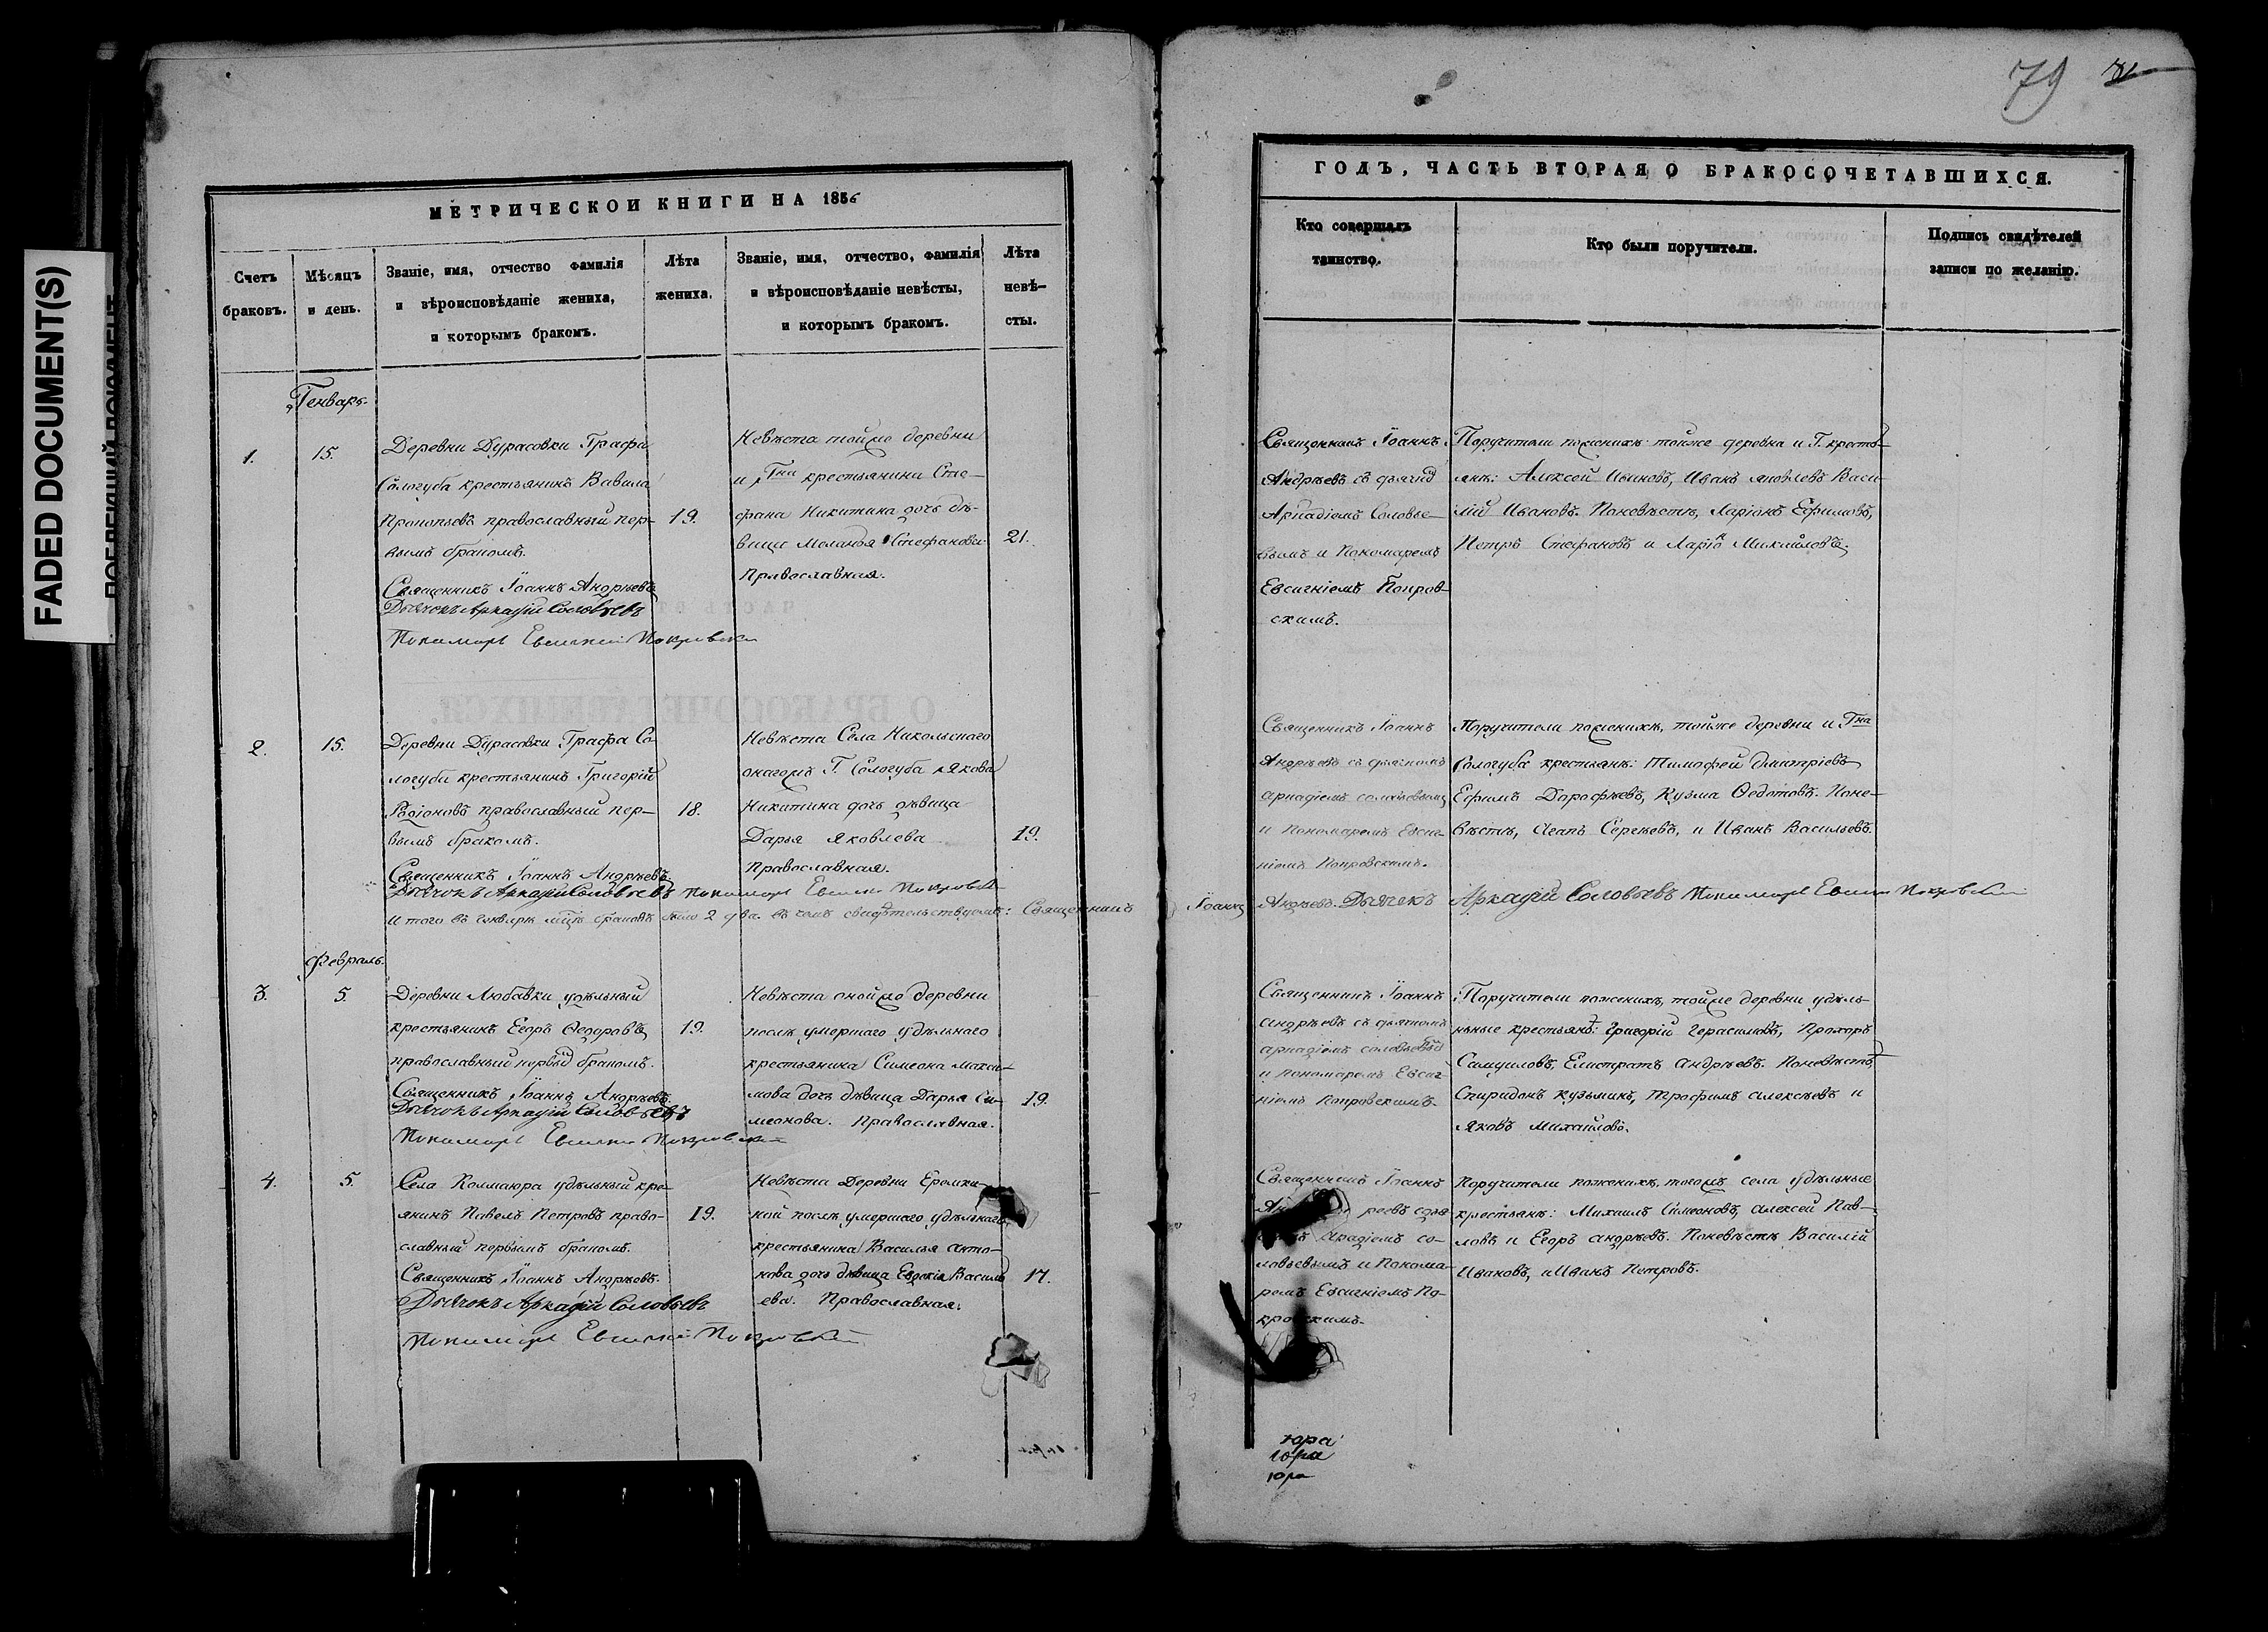 FADED DOCUMENT(S)
79
МЕТРИЧЕСКОЙ КНИГИ НА 1856
Счетъ браковъ.
Мѣсяцъ и день.
Званіе, имя, отчество фамилія и вѣроисповѣданіе жениха, и которымъ бракомъ.
Лѣта жениха.
Званіе, имя, отчество, фамилія и вѣроисповѣданіе невѣсты, и которымъ бракомъ.
Лѣта невѣ-
сты.
Генварь.
1.
15.
Деревни Дурасовки Графа
Сологуба крестьянинъ Вавила
Прокопьевъ православный пер-
вымъ бракомъ.
19.
Священникъ Іоаннъ Андрѣевъ
Дьячокъ Аркадій Соловьевъ
Пономарь Евсигній Покровскій
Невѣста тойже деревни
и Гна крестьянина Сте-
фана Никитина дочь дѣ-
вица Меланья Стефанова
Православная.
21.
2.
15.
Деревни Дурасовки Графа Со
логуба крестьянинъ Григорій
Родіоновъ православный пер-
вымъ бракомъ.
18.
Священникъ Іоаннъ Андрѣевъ
Дьячокъ Аркадій Соловьевъ Пономарь Евсигній Покровскій
Невѣста Села Никольскаго
онагожъ Г. Сологуба Якова
Никитина дочь дѣвица
Дарья Яковлева
Православная.
19.
Итого въ генварѣ мцѣ браковъ 2 два. въ чемъ свидѣтельствуемъ: Священникъ
Февраль.
3.
5.
Деревни Любавки удѣльный
крестьянинъ Егоръ Ѳедоровъ
православный первый бракомъ.
19.
Священникъ Іоаннъ Андрѣевъ
Дьячокъ Аркадій Соловьевъ
Пономарь Евсигній Покровскій
Невѣста онойже деревни
послѣ умершаго удѣльнаго
крестьянина Симеона Макси-
мова дочь дѣвица Дарья Си-
меонова. Православная.
19.
4.
5.
Села Колмаюра удѣльный кре
янинъ Павелъ Петровъ право-
славный первымъ бракомъ.
19.
Священникъ Іоаннъ Андрѣевъ.
Дьячокъ Аркадій Соловьевъ
Пономарь Евсигній Покровскій
Невѣста Деревни Еремки-
ной послѣ умершаго удѣльнаго
крестьянина Василья Анто-
нова дочь дѣвица Евдокія Василь
ева. Православная.
17.
ГОДЪ, ЧАСТЬ ВТОРАЯ О БРАКОСОЧЕТАВШИХСЯ.
Кто совершалъ таинство.
Кто были поручители.
Подпись свидѣтелей записи по желанію.
Священникъ Іоаннъ
Андрѣевъ съ дьячкд
Аркадіемъ Соловье-
вымъ и Пономаремъ
Евсигніемъ Покров-
скимъ.
Поручители поженихѣ: тойже деревни и Г. кресть-
янъ: Алексей Ивановъ, Иванъ Яковлевъ Васи-
лій Ивановъ. Поневѣстѣ, Ларіонъ Ефимовъ,
Петръ Стефановъ и Ларіонъ Михайловъ.
Священникъ Іоаннъ
Андрѣевъ съ дьячкомъ
Аркадіемъ Соловьевымъ
и Пономаремъ Евсиг
ніемъ Покровскимъ.
Поручители поженихѣ, тойже деревни и Гна
Сологуба крестьянъ: Тимофей Дмитріевъ
Ефимъ Дорофѣевъ, Кузма Ѳедотовъ. Поне-
вѣстѣ, Агапъ Сергѣевъ, и Иванъ Васильевъ.
Іоаннъ Андрѣевъ. Дьячекъ Аркадій Соловьевъ Пономарь Евсигній Покровскій
Священникъ Іоаннъ
Андрѣевъ съ дьячкомъ
Аркадіемъ Соловьевый
и Пономаремъ Евсиг
ніемъ Покровскимъ.
Поручители поженихѣ, тойже деревни удѣль-
ьные крестьянъ: Григорій Герасимовъ, Прохоръ
Самуиловъ, Елистратъ Андрѣевъ. Поневѣстѣ
Спиридонъ Кузьминъ, Трофимъ Алексѣевъ и
Яковъ Михайловъ.
Священникъ Іоаннъ
реевъ сдья
Аркадіемъ Со-
ловьевымъ и Понома-
ремъ Евсигніемъ По-
кровскимъ.
Поручители поженихѣ, тогожъ села удѣльные
крестьянъ: Михаилъ Симеоновъ, Алексей Пав-
ловъ и Егоръ Андрѣевъ. Поневѣстѣ Василій
Ивановъ, и Иванъ Петровъ.
юра
юра
юра